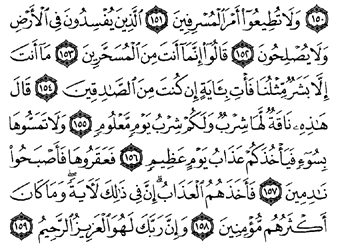 ﴿١٥٠﴾ وَلَا تُطِيعُوٓا۟ أَمْرَ ٱلْمُسْرِفِينَ ﴿١٥١﴾ ٱلَّذِينَ يُفْسِدُونَ فِى ٱلْأَرْضِ
وَلَا يُصْلِحُونَ ﴿١٥٢﴾ قَالُوٓا۟ إِنَّمَآ أَنتَ مِنَ ٱلْمُسَحَّرِينَ ﴿١٥٣﴾ مَآ أَنتَ
إِلَّا بَشَرٌ مِّثْلُنَا فَأْتِ بِـَٔايَةٍ إِن كُنتَ مِنَ ٱلصَّـٰدِقِينَ ﴿١٥٤﴾ قَالَ
هَـٰذِهِۦ نَاقَةٌ لَّهَا شِرْبٌ وَلَكُمْ شِرْبُ يَوْمٍ مَّعْلُومٍ ﴿١٥٥﴾ وَلَا تَمَسُّوهَا
بِسُوٓءٍ فَيَأْخُذَكُمْ عَذَابُ يَوْمٍ عَظِيمٍ ﴿١٥٦﴾ فَعَقَرُوهَا فَأَصْبَحُوا۟
نَـٰدِمِينَ ﴿١٥٧﴾ فَأَخَذَهُمُ ٱلْعَذَابُ ۗ إِنَّ فِى ذَٰلِكَ لَـَٔايَةً ۖ وَمَا كَانَ
أَكْثَرُهُم مُّؤْمِنِينَ ﴿١٥٨﴾ وَإِنَّ رَبَّكَ لَهُوَ ٱلْعَزِيزُ ٱلرَّحِيمُ ﴿١٥٩﴾